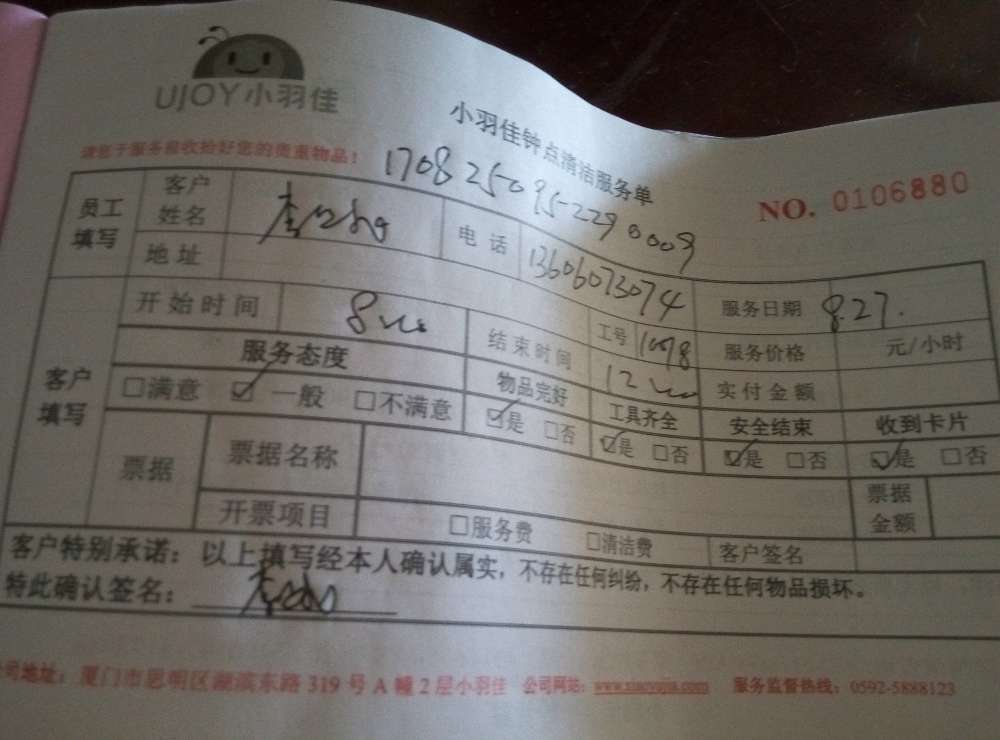 UJOY小羽佳
小羽佳钟点清洁服务单
请您于服务前收拾好您的贵重物品！
170825095-2290009
NO. 0106880
员工填写
客户姓名 李
电话 13606073074
服务日期 8.27.
地址
工号 10078
服务价格 元/小时
客户填写
开始时间 8:00
结束时间 12:00
实付金额
服务态度
☐满意 ☑一般 ☐不满意
物品完好
☑是 ☐否
工具齐全
☑是 ☐否
安全结束
☑是 ☐否
收到卡片
☑是 ☐否
票据
票据名称
票据金额
开票项目
☐服务费 ☐清洁费
客户签名
客户特别承诺：以上填写经本人确认属实，不存在任何纠纷，不存在任何物品损坏。
特此确认签名： 李
公司地址：厦门市思明区湖滨东路319号A幢2层小羽佳 公司网站：www.xiaoyujia.com 服务监督热线：0592-5888123